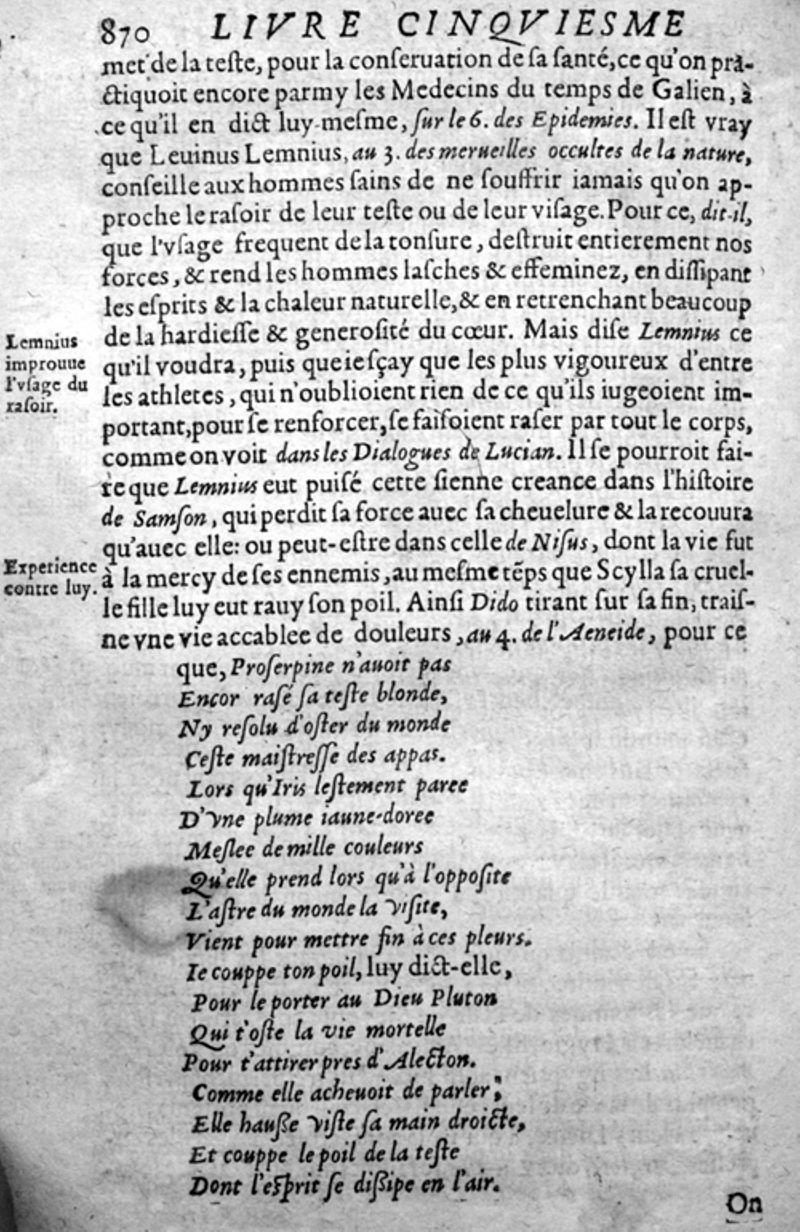 870 LIVRE CINQVIESME
met de la teſte, pour la conſeruation de ſa ſanté, ce qu'on pra-
ctiquoit encore parmy les Medecins du temps de Galien, à
ce qu'il en dict luy-meſme, ſur le 6. des Epidemies. Il eſt vray
que Leuinus Lemnius, au 3. des merueilles occultes de la nature,
conſeille aux hommes ſains de ne ſouffrir iamais qu'on ap-
proche le raſoir de leur teſte ou de leur viſage. Pour ce, dit-il,
que l'vſage frequent de la tonſure, deſtruit entierement nos
forces, & rend les hommes laſches & effeminez, en diſſipant
les eſprits & la chaleur naturelle, & en retrenchant beaucoup
de la hardieſſe & generoſité du cœur. Mais diſe Lemnius ce
qu'il voudra, puis que ie ſçay que les plus vigoureux d'entre
les athletes, qui n'oublioient rien de ce qu'ils iugeoient im-
portant, pour ſe renforcer, ſe faiſoient raſer par tout le corps,
comme on voit dans les Dialogues de Lucian. Il ſe pourroit fai-
re que Lemnius eut puiſé cette ſienne creance dans l'hiſtoire
de Samſon, qui perdit ſa force auec ſa cheuelure & la recouura
qu'auec elle: ou peut-eſtre dans celle de Niſus, dont la vie fut
à la mercy de ſes ennemis, au meſme tẽps que Scylla ſa cruel-
le fille luy eut rauy ſon poil. Ainſi Dido tirant ſur ſa fin, traiſ-
ne vne vie accablee de douleurs, au 4. de l'Aeneide, pour ce
que, Proſerpine n'auoit pas
Encor raſé ſa teſte blonde,
Ny reſolu d'oſter du monde
Ceſte maiſtreſſe des appas.
Lors qu'Iris leſtement paree
D'vne plume iaune-doree
Meſlee de mille couleurs
Qu'elle prend lors qu'à l'oppoſite
L'aſtre du monde la viſite,
Vient pour mettre fin à ces pleurs.
Ie couppe ton poil, luy dict-elle,
Pour le porter au Dieu Pluton
Qui t'oſte la vie mortelle
Pour t'attirer pres d'Alecton.
Comme elle acheuoit de parler;
Elle hauſſe viſte ſa main droicte,
Et couppe le poil de la teſte
Dont l'eſprit ſe diſſipe en l'air.
On
Lemnius
improuue
l'vſage du
raſoir.
Experience
contre luy.